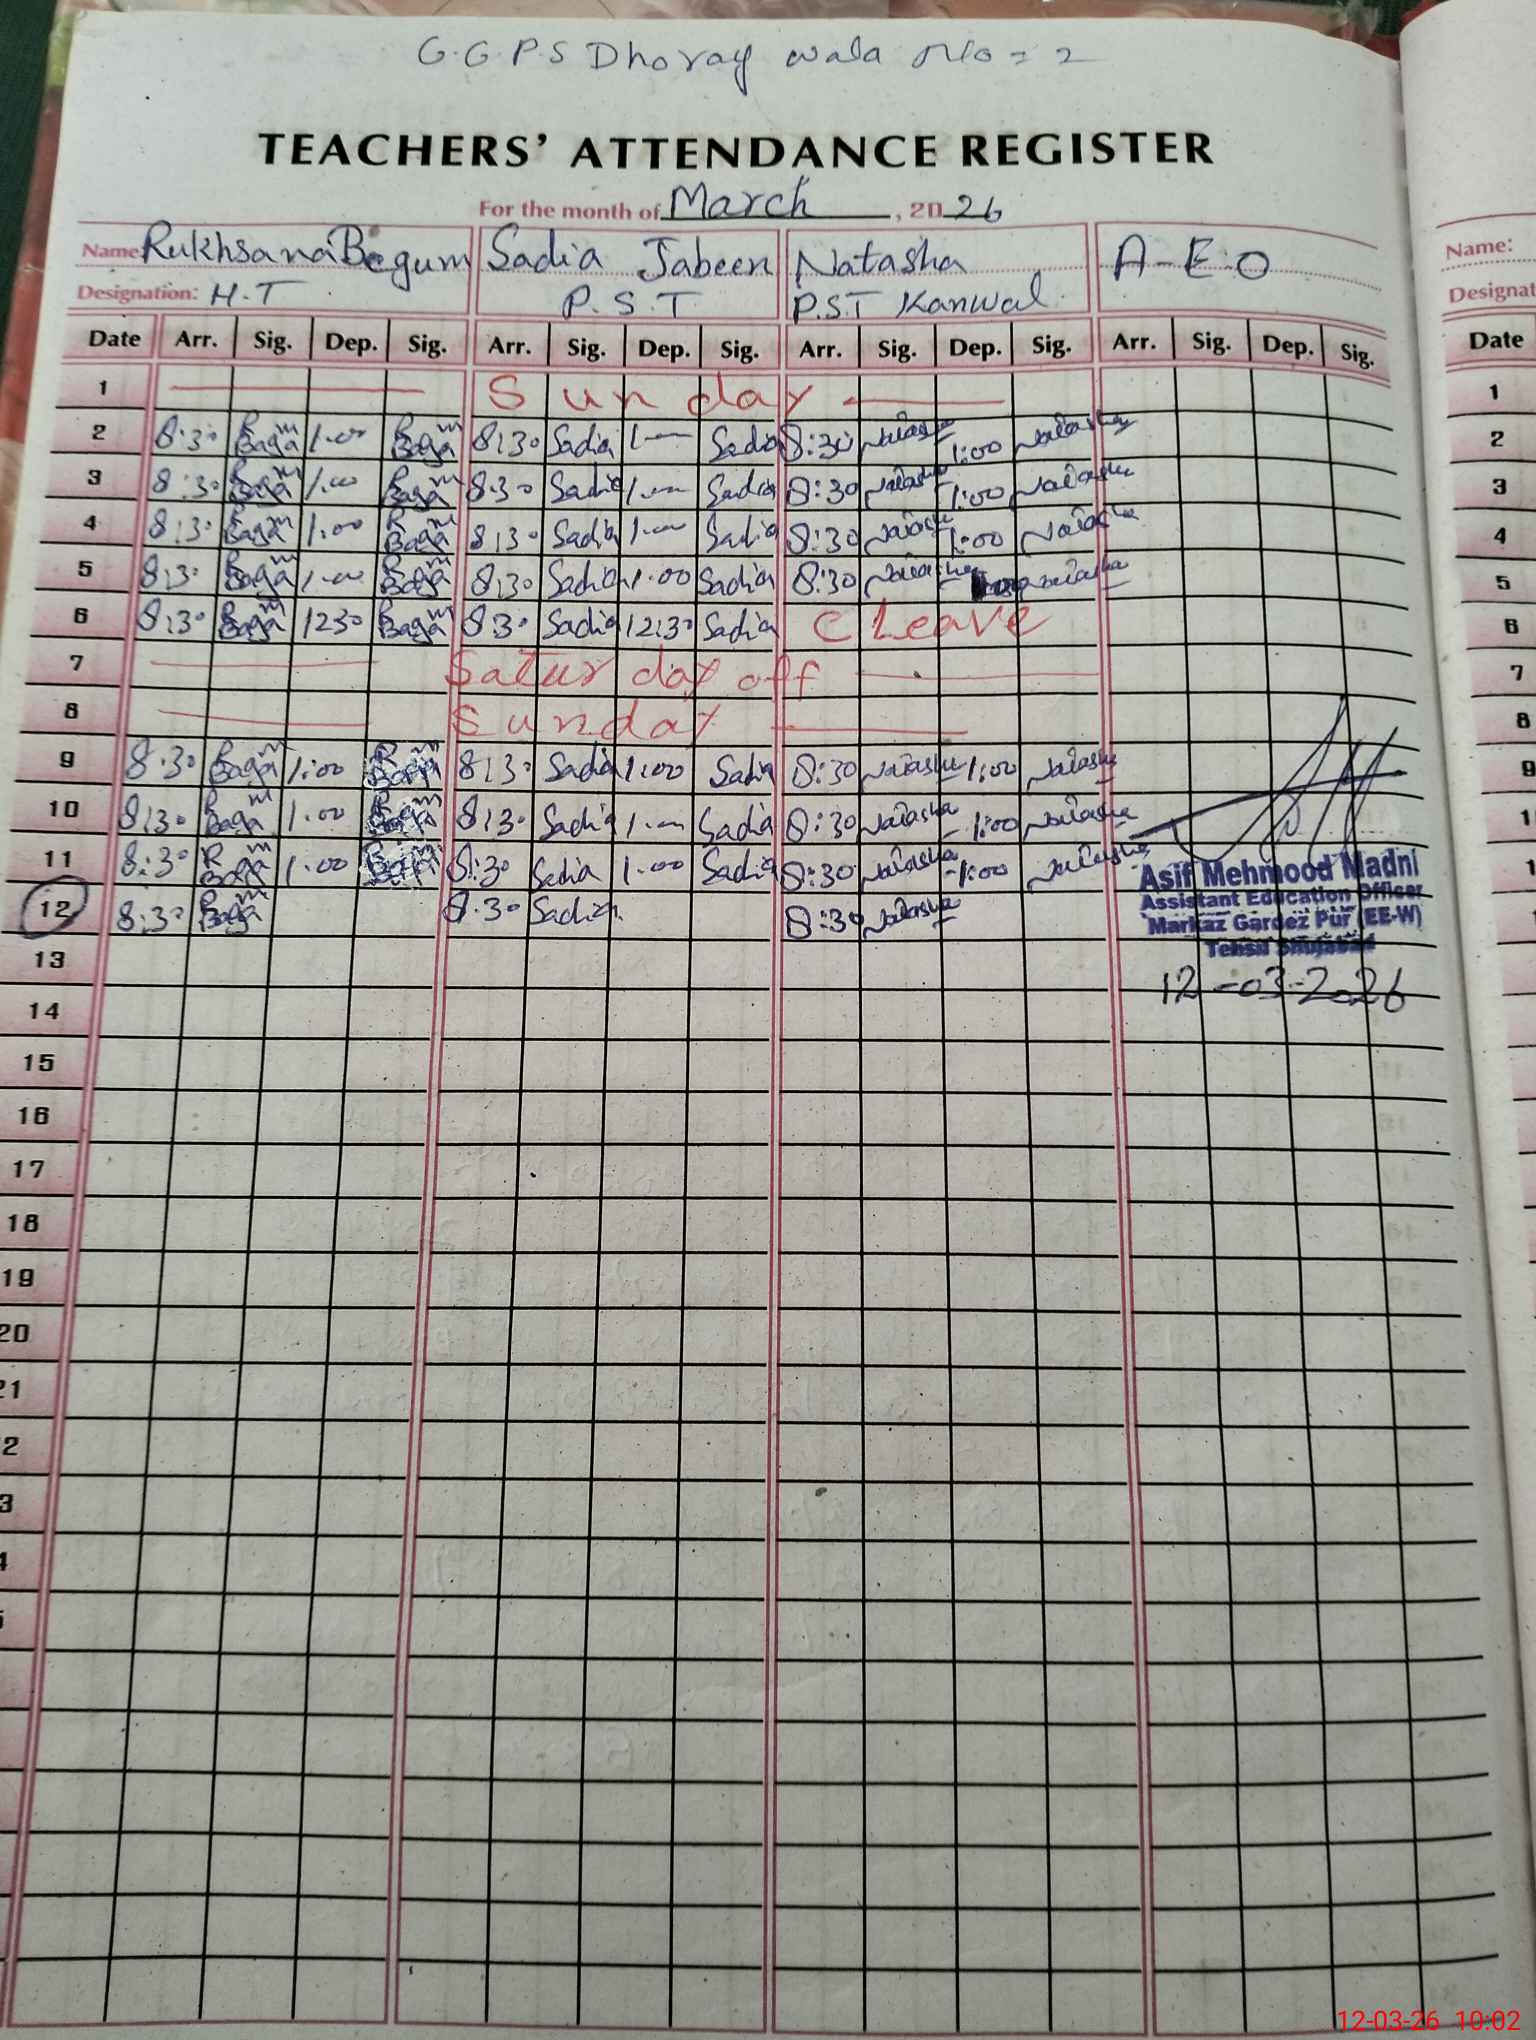 G.G.P.S Dhoray wala No = 2
TEACHERS' ATTENDANCE REGISTER
For the month of March, 2026
Name Rukhsana Begum Sadia Jabeen Natasha A-E.O Name:
Designation: H.T P.S.T P.S.T Kanwal Designat
Date Arr. Sig. Dep. Sig. Arr. Sig. Dep. Sig. Arr. Sig. Dep. Sig. Arr. Sig. Dep. Sig. Date
1 Sunday 1
2 8:30 R Bagam 1:00 R Bagam 8:30 Sadia 1:00 Sadia 8:30 Natasha 1:00 Natasha 2
3 8:30 R Bagam 1:00 R Bagam 8:30 Sadia 1:00 Sadia 8:30 Natasha 1:00 Natasha 3
4 8:30 R Bagam 1:00 R Bagam 8:30 Sadia 1:00 Sadia 8:30 Natasha 1:00 Natasha 4
5 8:30 R Bagam 1:00 R Bagam 8:30 Sadia 1:00 Sadia 8:30 Natasha Natasha 5
6 8:30 R Bagam 1230 R Bagam 8:30 Sadia 12:30 Sadia C Leave 6
7 Saturday off 7
8 Sunday 8
9 8:30 R Bagam 1:00 R Bagam 8:30 Sadia 1:00 Sadia 8:30 Natasha 1:00 Natasha 9
10 8:30 R Bagam 1:00 R Bagam 8:30 Sadia 1:00 Sadia 8:30 Natasha 1:00 Natasha
11 8:30 R Bagam 1:00 R Bagam 8:30 Sadia 1:00 Sadia 8:30 Natasha 1:00 Natasha
12 8:30 R Bagam 8:30 Sadia 8:30 Natasha
Asif Mehmood Madni
Assistant Education Officer
Markaz Gardez Pur (EE-W)
Tehsil Shujabad
12-03-2026
13
14
15
16
17
18
19
20
21
2
3
4
5
12-03-26 10:02